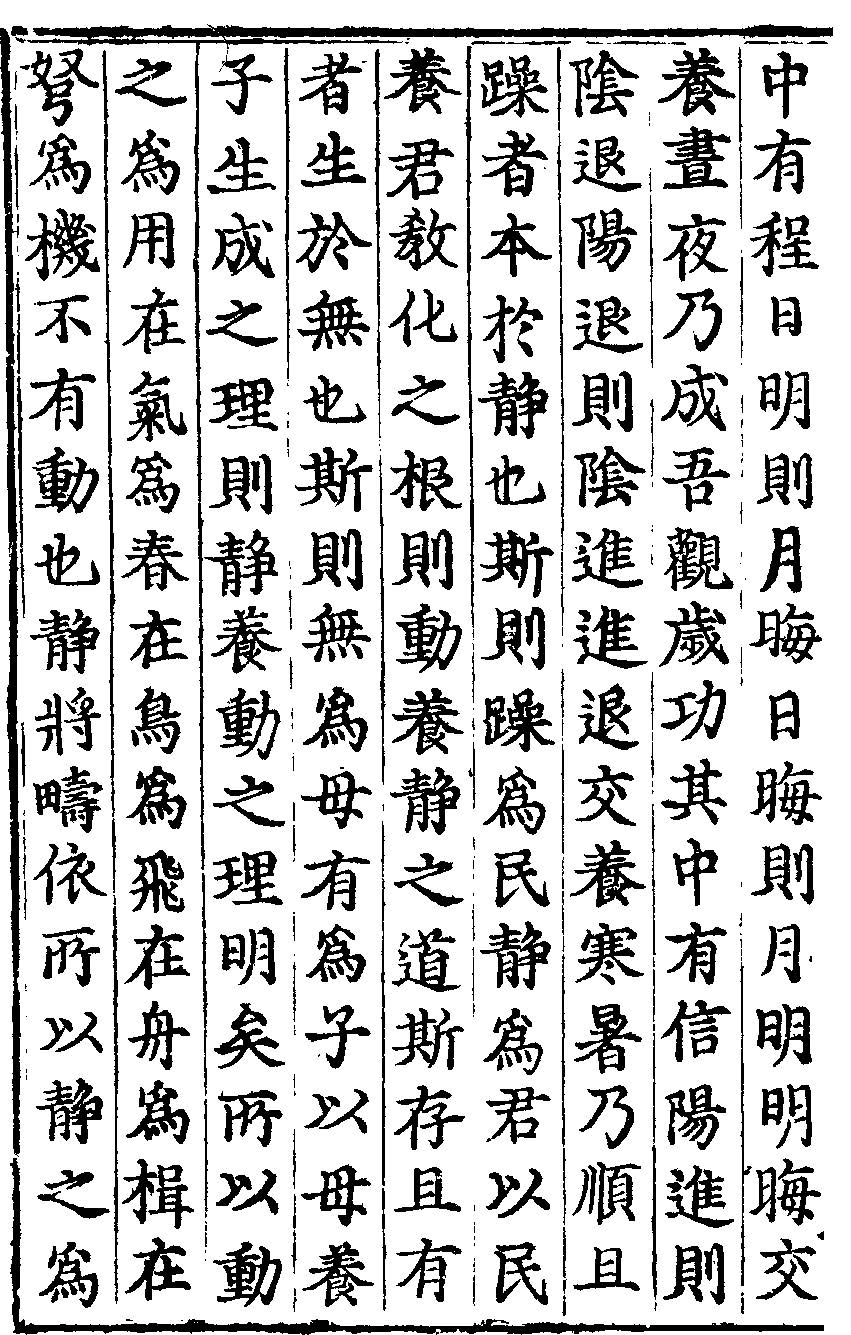 中有程日明則月晦日晦則月明明晦交
養晝夜乃成吾觀歲功其中有信陽進則
陰退陽退則陰進進退交養寒暑乃順且
躁者本於静也斯則躁爲民静爲君以民
養君教化之根則動養静之道斯存且有
者生於無也斯則無爲母有爲子以母養
子生成之理則静養動之理明矣所以動
之爲用在氣爲春在鳥爲飛在舟爲楫在
弩爲機不有動也静將疇依所以静之爲